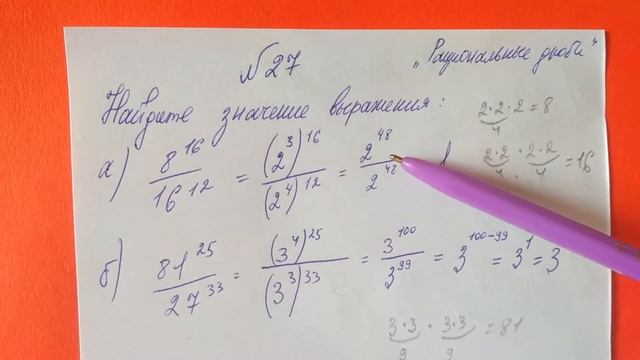 №27
„Рациональные дроби“
Найдите значение выражения:
2·2·2=8
4
а) 8^16/16^12 = (2^3)^16/(2^4)^12 = 2^48/2^48
2·2·2·2=16
4 4
б) 81^25/27^33 = (3^4)^25/(3^3)^33 = 3^100/3^99 = 3^100-99 = 3^1 = 3
3·3·3·3=81
9 9